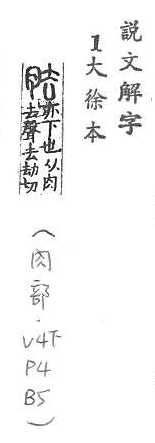 説文解字
1大徐本
胠亦下也从肉
去聲去劫切
(肉部.V4下
P4
B5)